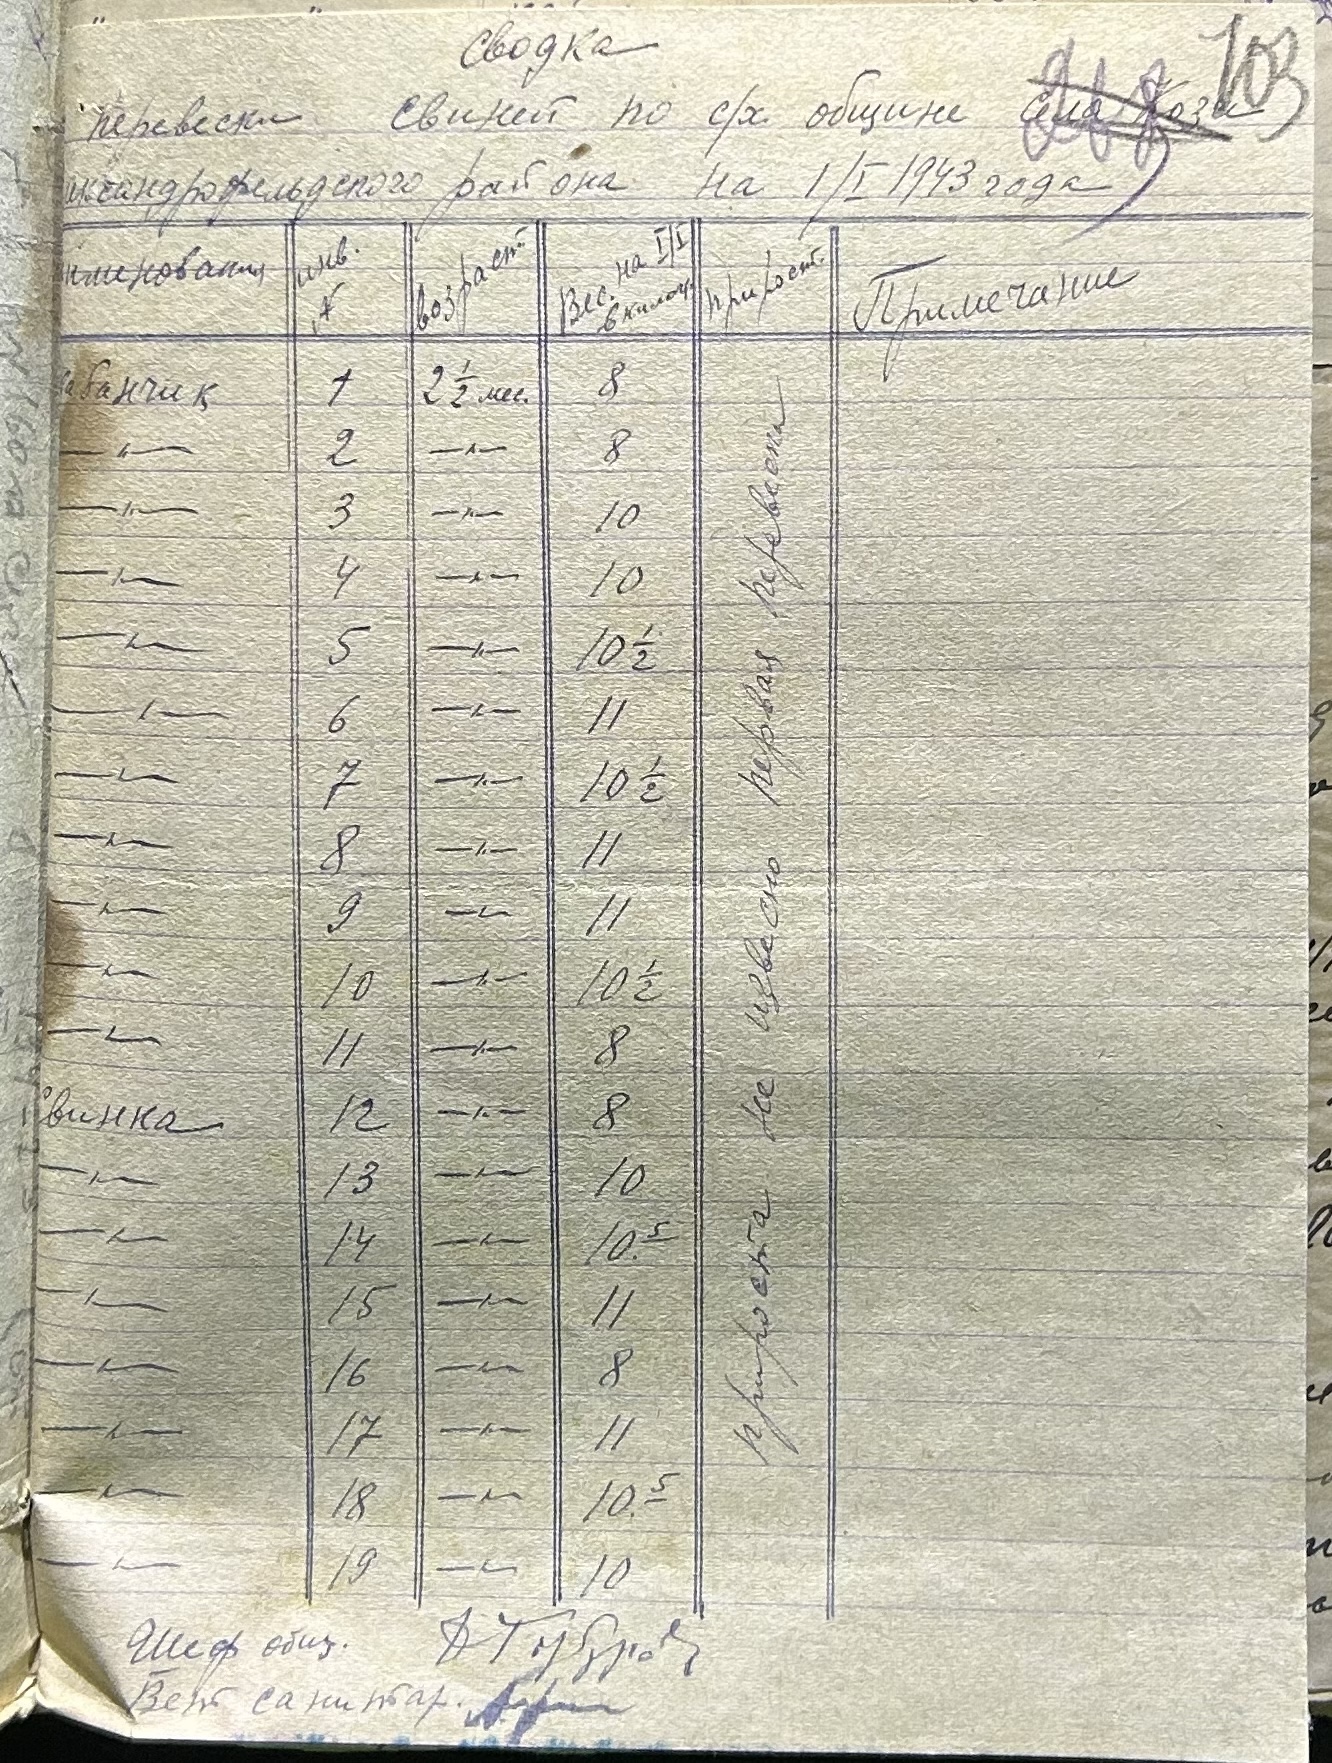 103
Сводка
перевески свиней по с/х общине села
ксандрофельдского района на 1/I 1943 года
именования инв. № возраст Вес. на I/I в килогр. прирост. Примечание
абанчик 1 2 1/2 мес. 8
—"— 2 —"— 8
—"— 3 —"— 10
—"— 4 —"— 10
—"— 5 —"— 10 1/2
—"— 6 —"— 11
—"— 7 —"— 10 1/2
—"— 8 —"— 11
—"— 9 —"— 11
—"— 10 —"— 10 1/2
—"— 11 —"— 8
Свинка 12 —"— 8
—"— 13 —"— 10
—"— 14 —"— 10.5
—"— 15 —"— 11
—"— 16 —"— 8
—"— 17 —"— 11
—"— 18 —"— 10.5
—"— 19 —"— 10
прироста не извесно первая перевеска
Шеф общ.
Вет санитар.